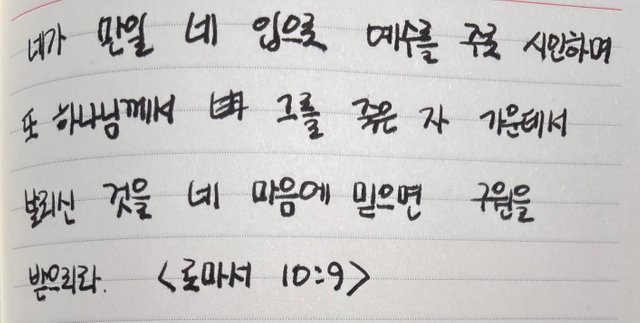 네가 만일 네 입으로 예수를 주로 시인하며
또 하나님께서 그를 죽은 자 가운데서
발리신 것을 네 마음에 믿으면 구원을
받으리라. <로마서 10:9>